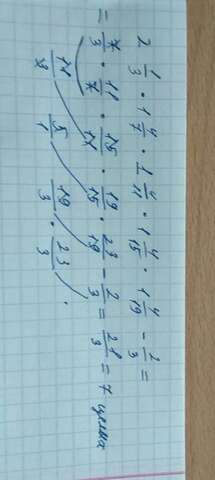 2 1/3 · 1 4/7 · 1 4/11 · 1 4/15 · 1 4/19 - 2/3 =
= 7/3 · 11/7 · 15/11 · 19/15 · 23/19 - 2/3 = 21/3 = 7 целых
11/3 5/1 19/3 · 23/3